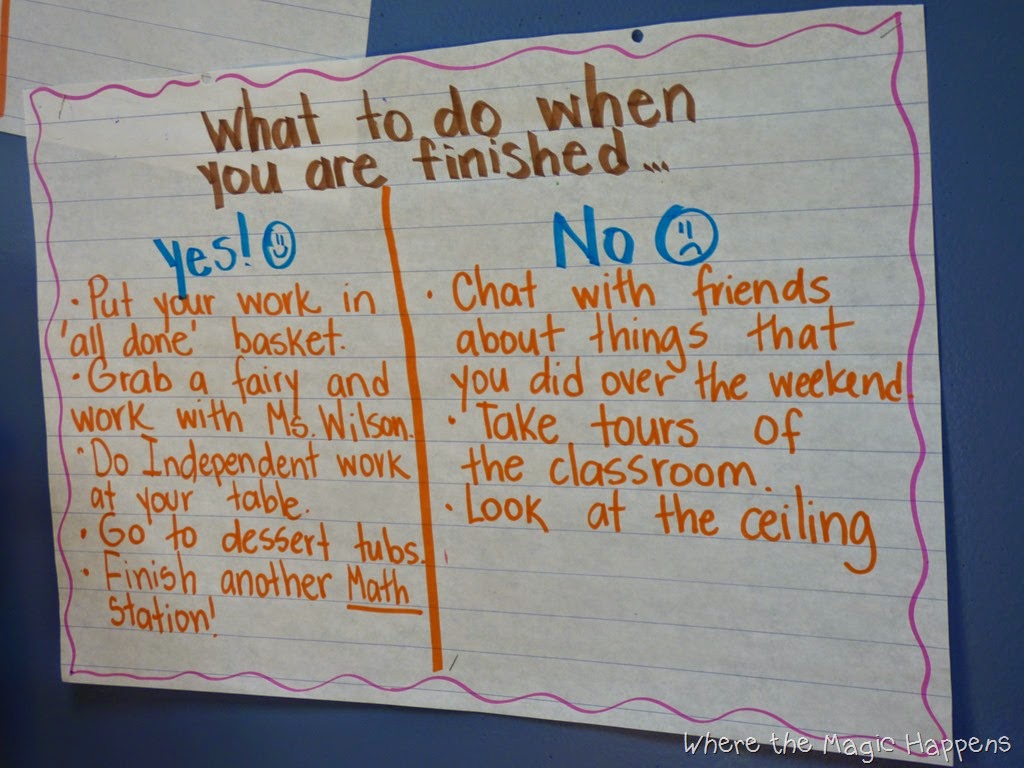 What to do when
you are finished...
Yes!
• Put your work in
'all done' basket.
• Grab a fairy and
work with Ms. Wilson.
• Do Independent work
at your table.
• Go to dessert tubs.
• Finish another Math
Station!
No
• Chat with friends
about things that
you did over the weekend.
• Take tours of
the classroom.
• Look at the ceiling
Where the Magic Happens